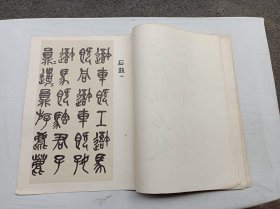 石鼓一
避車既工避馬
既同避車既好
避馬既駘君子
員邋員斿麀鹿